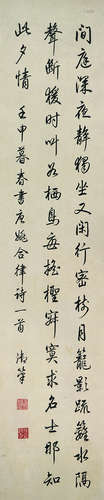 閒庭深夜靜獨坐又閒行密樹月籠影疏籬水隔
聲斷猨時叫谷棲鳥每搖檉寂寞求名士那知
此夕情 壬申暮春書唐姚合律詩一首 御筆